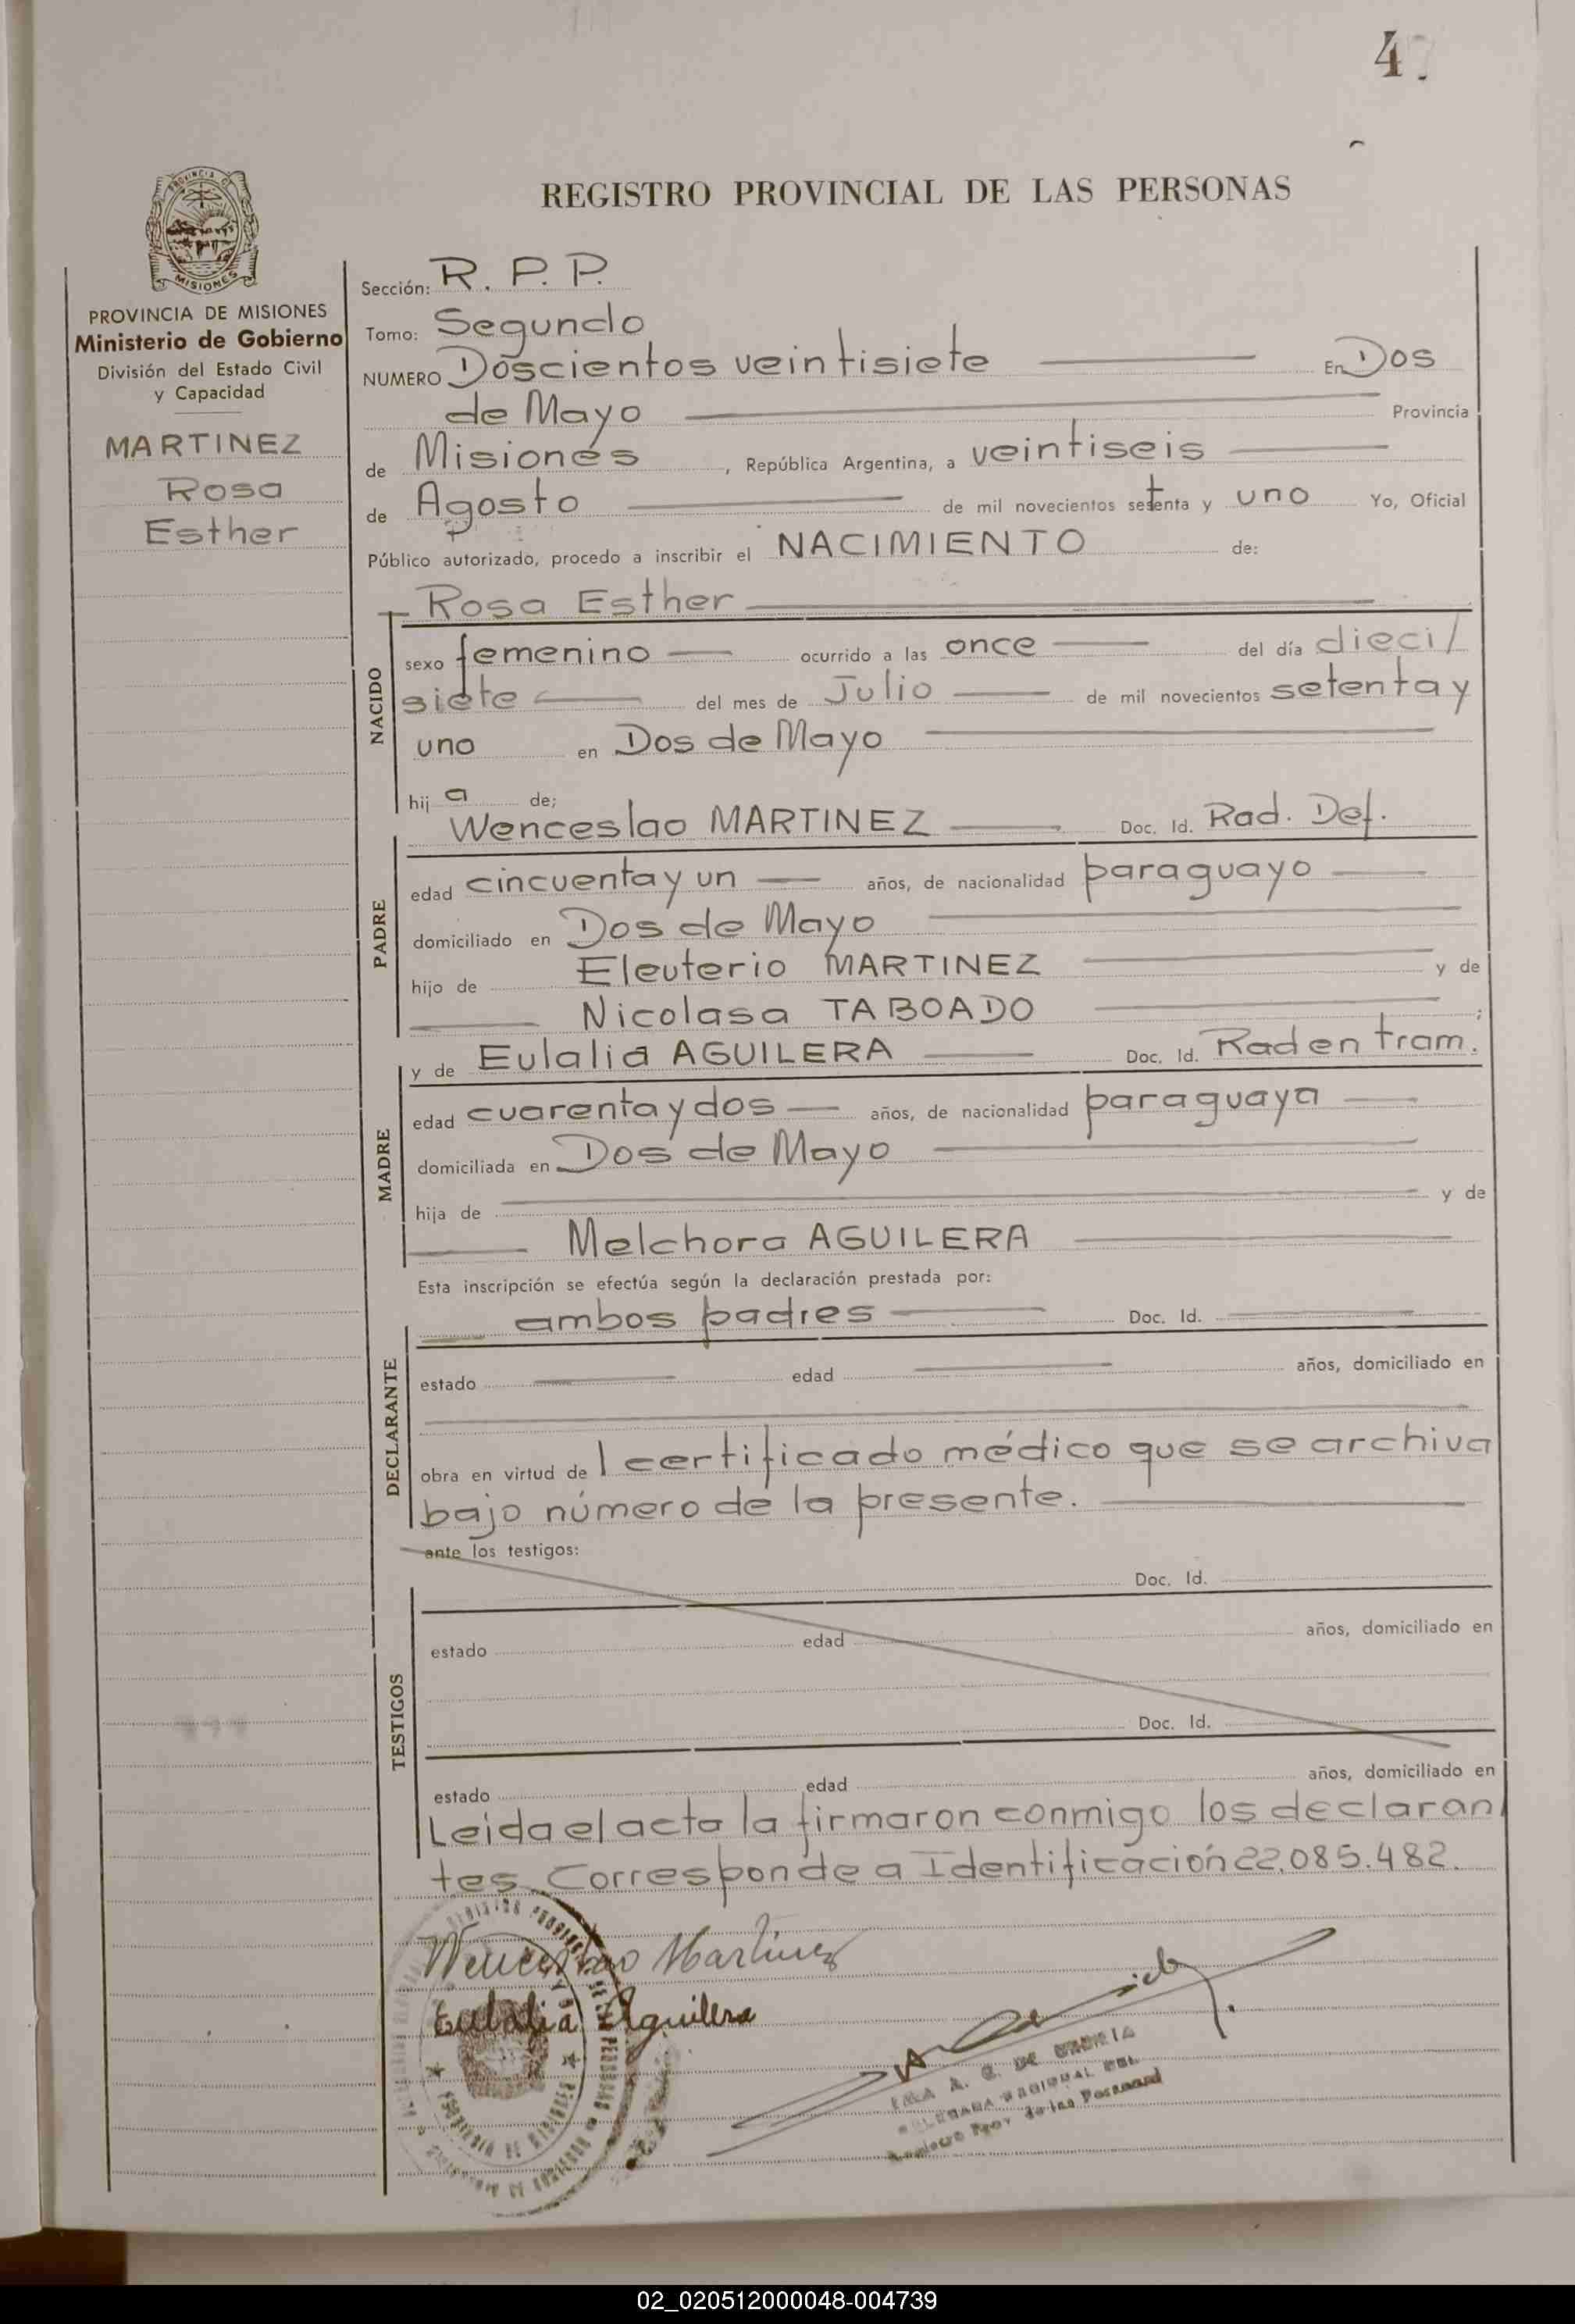 4
REGISTRO PROVINCIAL DE LAS PERSONAS
MISIONES
PROVINCIA DE MISIONES
Ministerio de Gobierno
División del Estado Civil
y Capacidad
MARTINEZ
Rosa
Esther
Sección: R. P. P.
Tomo: Segundo
NUMERO Doscientos veintisiete En Dos
de Mayo Provincia
de Misiones, República Argentina, a veintiseis
de Agosto de mil novecientos setenta y uno Yo, Oficial
Público autorizado, procedo a inscribir el NACIMIENTO de:
Rosa Esther
NACIDO
sexo femenino ocurrido a las once del día dieci/
siete del mes de Julio de mil novecientos setenta y
uno en Dos de Mayo
hij a de;
Wenceslao MARTINEZ Doc. Id. Rad. Def.
PADRE
edad cincuenta y un años, de nacionalidad paraguayo
domiciliado en Dos de Mayo
hijo de Eleuterio MARTINEZ y de
Nicolasa TABOADO ;
y de Eulalia AGUILERA Doc. Id. Rad en tram.
MADRE
edad cuarenta y dos años, de nacionalidad paraguaya
domiciliada en Dos de Mayo
hija de y de
Melchora AGUILERA
Esta inscripción se efectúa según la declaración prestada por:
ambos padres Doc. Id.
DECLARANTE
estado edad años, domiciliado en
obra en virtud de l certificado médico que se archiva
bajo número de la presente.
ante los testigos:
Doc. Id.
TESTIGOS
estado edad años, domiciliado en
Doc. Id.
estado edad años, domiciliado en
Leida el acta la firmaron conmigo los declaran
tes. Corresponde a Identificación 22.085.482.
Wenceslao Martinez
Eulalia Aguilera
Registro Prov. de las Personas
02_020512000048-004739